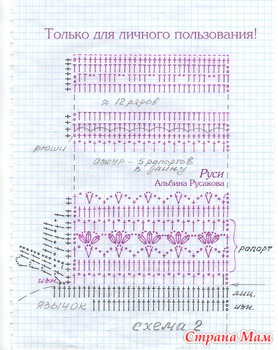 Только для личного пользования!
≈ 12 рядов
рюши
ажур - 5 рапортов
в длину
Руси
Альбина Русакова
рапорт
изн.
лиц.
язычок
изн.
схема 2
Страна Мам